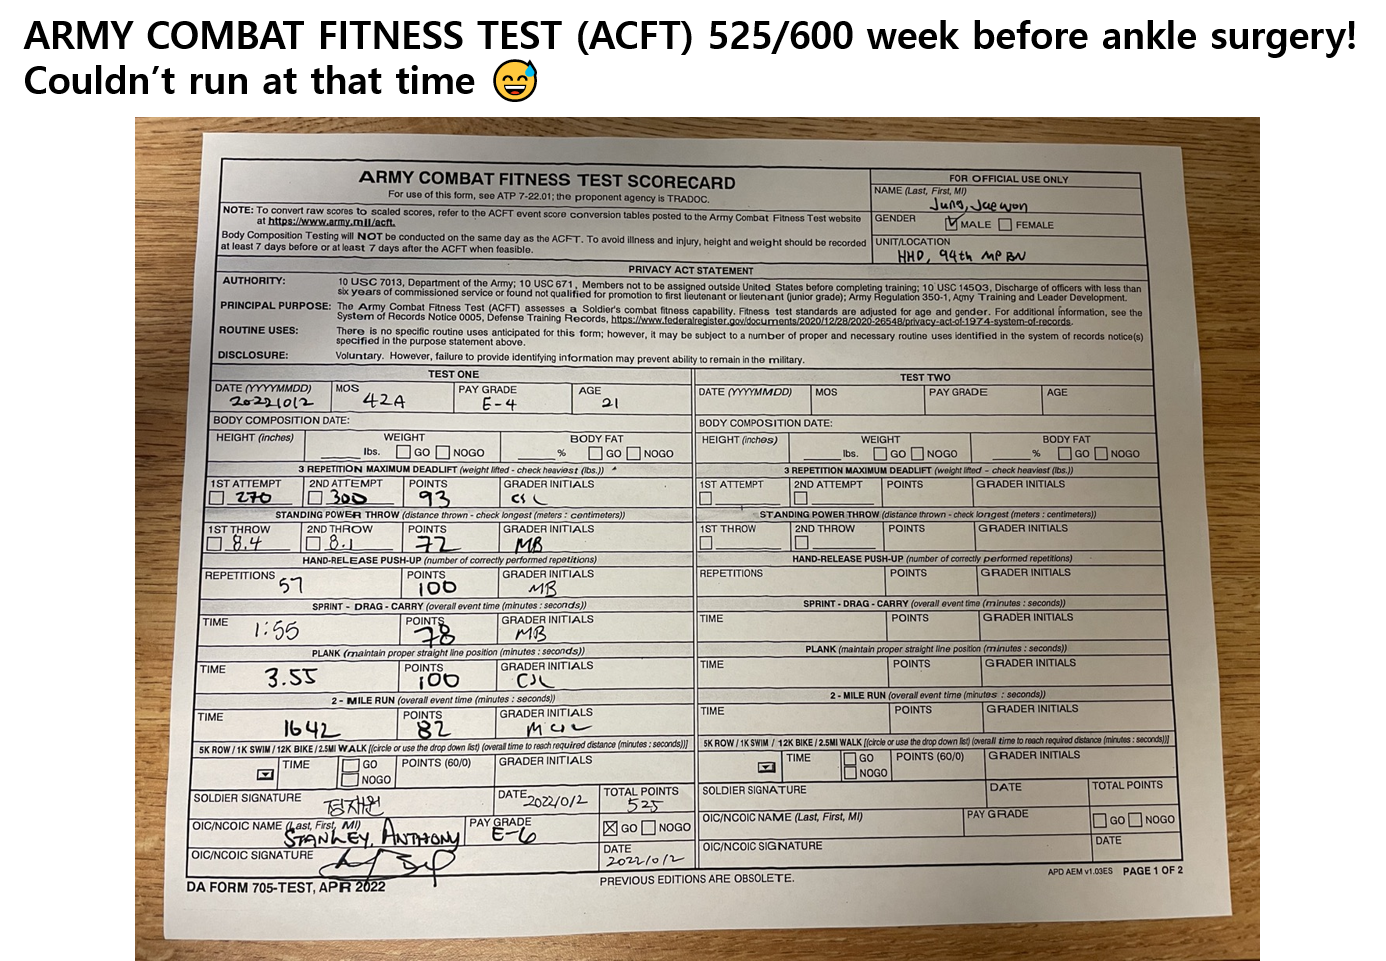 ARMY COMBAT FITNESS TEST (ACFT) 525/600 week before ankle surgery!
Couldn’t run at that time 😅
ARMY COMBAT FITNESS TEST SCORECARD
For use of this form, see ATP 7-22.01; the proponent agency is TRADOC.
NOTE: To convert raw scores to scaled scores, refer to the ACFT event score conversion tables posted to the Army Combat Fitness Test website
at https://www.army.mil/acft.
Body Composition Testing will NOT be conducted on the same day as the ACFT. To avoid illness and injury, height and weight should be recorded
at least 7 days before or at least 7 days after the ACFT when feasible.
FOR OFFICIAL USE ONLY
NAME (Last, First, MI)
Jung, Jaewon
GENDER MALE FEMALE
UNIT/LOCATION
HHD, 94th MP BN
PRIVACY ACT STATEMENT
AUTHORITY: 10 USC 7013, Department of the Army; 10 USC 671, Members not to be assigned outside United States before completing training; 10 USC 14503, Discharge of officers with less than
six years of commissioned service or found not qualified for promotion to first lieutenant or lieutenant (junior grade); Army Regulation 350-1, Army Training and Leader Development.
PRINCIPAL PURPOSE: The Army Combat Fitness Test (ACFT) assesses a Soldier's combat fitness capability. Fitness test standards are adjusted for age and gender. For additional information, see the
System of Records Notice 0005, Defense Training Records, https://www.federalregister.gov/documents/2020/12/28/2020-26548/privacy-act-of-1974-system-of-records.
ROUTINE USES: There is no specific routine uses anticipated for this form; however, it may be subject to a number of proper and necessary routine uses identified in the system of records notice(s)
specified in the purpose statement above.
DISCLOSURE: Voluntary. However, failure to provide identifying information may prevent ability to remain in the military.
TEST ONE
DATE (YYYYMMDD) MOS PAY GRADE AGE
20221012 42A E-4 21
BODY COMPOSITION DATE:
HEIGHT (inches) WEIGHT BODY FAT
lbs. GO NOGO % GO NOGO
3 REPETITION MAXIMUM DEADLIFT (weight lifted - check heaviest (lbs.))
1ST ATTEMPT 2ND ATTEMPT POINTS GRADER INITIALS
270 300 93 CSL
STANDING POWER THROW (distance thrown - check longest (meters : centimeters))
1ST THROW 2ND THROW POINTS GRADER INITIALS
8.4 8.1 72 MB
HAND-RELEASE PUSH-UP (number of correctly performed repetitions)
REPETITIONS POINTS GRADER INITIALS
57 100 MB
SPRINT - DRAG - CARRY (overall event time (minutes : seconds))
TIME POINTS GRADER INITIALS
1:55 78 MB
PLANK (maintain proper straight line position (minutes : seconds))
TIME POINTS GRADER INITIALS
3.55 100 CSL
2 - MILE RUN (overall event time (minutes : seconds))
TIME POINTS GRADER INITIALS
1642 82
5K ROW / 1K SWIM / 12K BIKE / 2.5MI WALK [(circle or use the drop down list) (overall time to reach required distance (minutes : seconds))]
TIME GO POINTS (60/0) GRADER INITIALS
NOGO
SOLDIER SIGNATURE 정재원 DATE 20221012 TOTAL POINTS
525
OIC/NCOIC NAME (Last, First, MI) PAY GRADE GO NOGO
STANLEY, ANTHONY E-6
OIC/NCOIC SIGNATURE DATE
20221012
TEST TWO
DATE (YYYYMMDD) MOS PAY GRADE AGE
BODY COMPOSITION DATE:
HEIGHT (inches) WEIGHT BODY FAT
lbs. GO NOGO % GO NOGO
3 REPETITION MAXIMUM DEADLIFT (weight lifted - check heaviest (lbs.))
1ST ATTEMPT 2ND ATTEMPT POINTS GRADER INITIALS
STANDING POWER THROW (distance thrown - check longest (meters : centimeters))
1ST THROW 2ND THROW POINTS GRADER INITIALS
HAND-RELEASE PUSH-UP (number of correctly performed repetitions)
REPETITIONS POINTS GRADER INITIALS
SPRINT - DRAG - CARRY (overall event time (minutes : seconds))
TIME POINTS GRADER INITIALS
PLANK (maintain proper straight line position (minutes : seconds))
TIME POINTS GRADER INITIALS
2 - MILE RUN (overall event time (minutes : seconds))
TIME POINTS GRADER INITIALS
5K ROW / 1K SWIM / 12K BIKE / 2.5MI WALK [(circle or use the drop down list) (overall time to reach required distance (minutes : seconds))]
TIME GO POINTS (60/0) GRADER INITIALS
NOGO
SOLDIER SIGNATURE DATE TOTAL POINTS
OIC/NCOIC NAME (Last, First, MI) PAY GRADE GO NOGO
OIC/NCOIC SIGNATURE DATE
DA FORM 705-TEST, APR 2022 PREVIOUS EDITIONS ARE OBSOLETE. APD AEM v1.03ES PAGE 1 OF 2